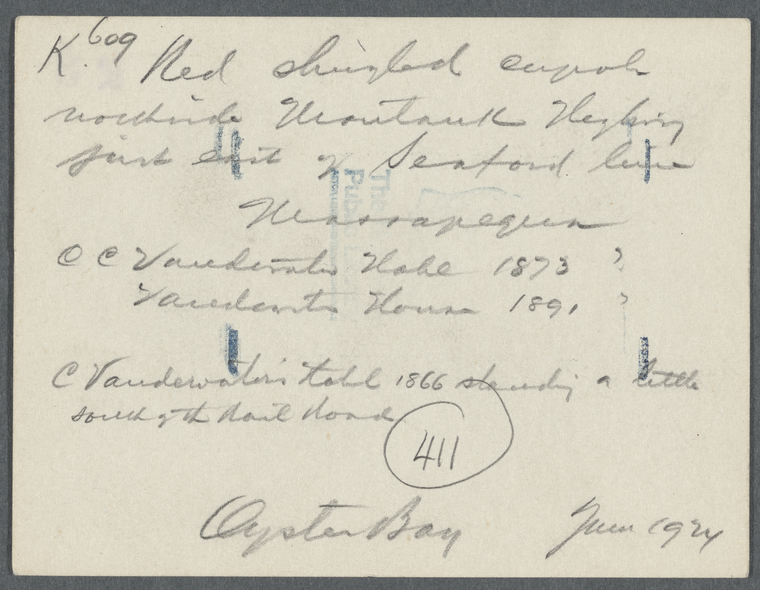 K. 609 Red shingled cupola
northside Montauk Highway
just east of Seaford line
Massapequa
C C Vandewater Hotel 1873 ?
Vandewater House 1891 ?
C Vandewater's Hotel 1866 standing a little
south of the Rail Road
411
Oyster Bay June 1924